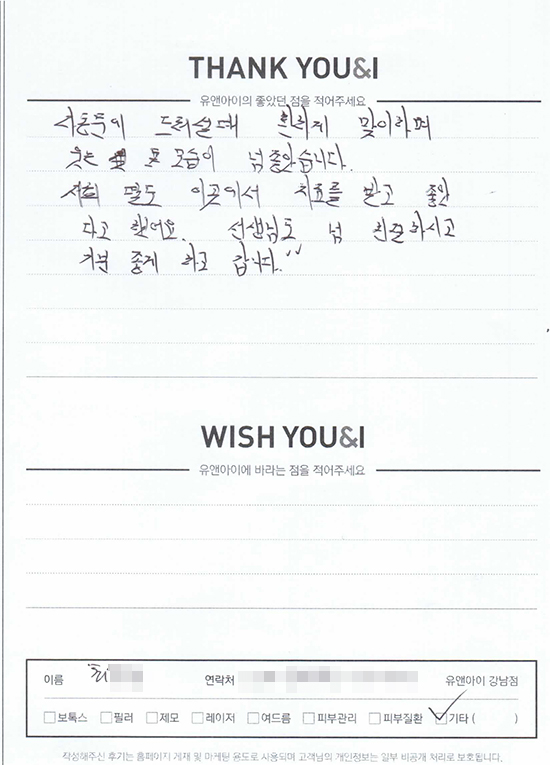 THANK YOU&I
유앤아이의 좋았던 점을 적어주세요
드러설때 환하게 맞이하며
웃는 모습이 넘 좋았습니다.
저희 딸도 이곳에서 치료를 받고 좋았
다고 했어요. 선생님도 넘 친절하시고
기분 좋게 하고 갑니다.
WISH YOU&I
유앤아이에 바라는 점을 적어주세요
이름 최 연락처 유앤아이 강남점
보톡스 필러 제모 레이저 여드름 피부관리 피부질환 기타 ( )
작성해주신 후기는 홈페이지 게재 및 마케팅 용도로 사용되며 고객님의 개인정보는 일부 비공개 처리로 보호됩니다.